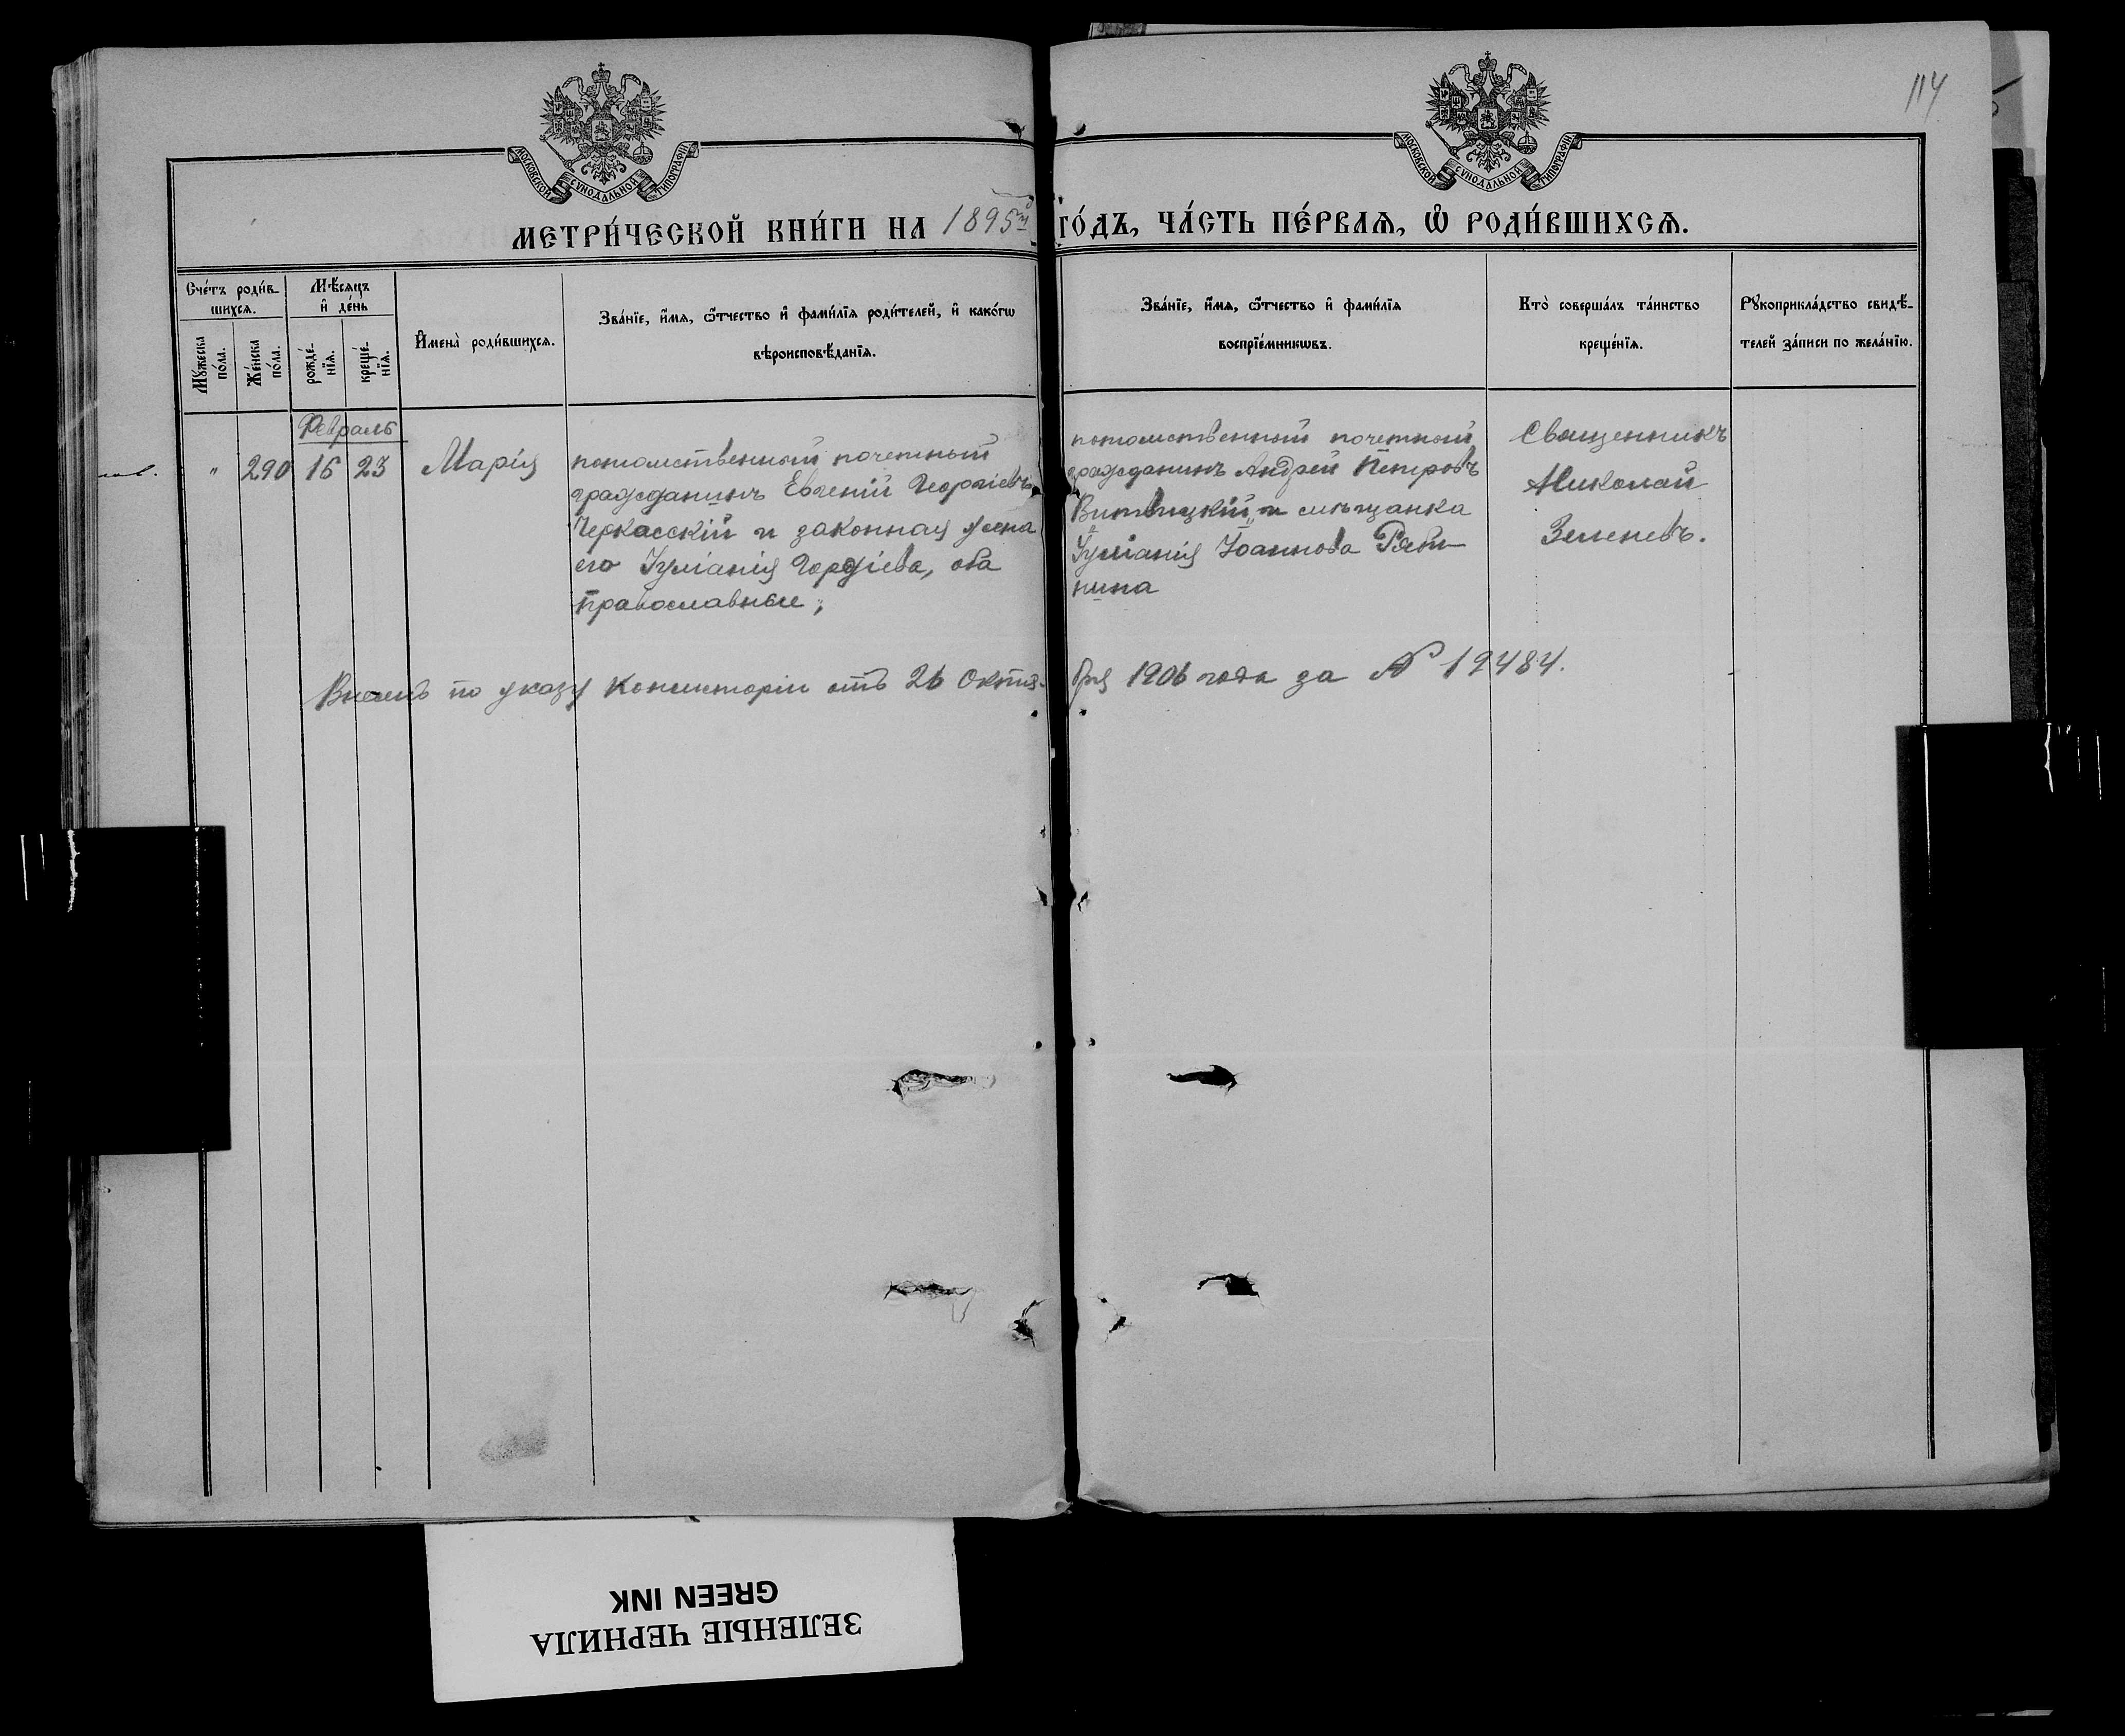 114
МОСКОВСКОЙ СѴНОДАЛЬНОЙ ТИПОГРАФІИ
МОСКОВСКОЙ СѴНОДАЛЬНОЙ ТИПОГРАФІИ
МЕТРИ́ЧЕСКОЙ КНИ́ГИ НА 1895й ГО́ДЪ, ЧА́СТЬ ПЕ́РВАѦ, Ѽ РОДИ́ВШИХСѦ.
Сче́тъ роди́в-
шихсѧ.
Мꙋ́жеска по́ла.
Же́нска по́ла.
Мѣ́сѧцъ и҆ де́нь
рожде́-
нїѧ.
креще́-
нїѧ.
И҆мена̀ роди́вшихсѧ.
Зва́нїе, и҆́мѧ, ѻ҆́тчество и҆ фами́лїѧ роди́телей, и҆ како́гѡ
вѣроисповѣ́данїѧ.
Зва́нїе, и҆́мѧ, ѻ҆́тчество и҆ фами́лїѧ
воспрїе́мникѡвъ.
Кто̀ соверша́лъ та́инство
креще́нїѧ.
Рꙋкоприкла́дство свидѣ́-
телей за́писи по жела́нїю.
Февраль
" 290 16 23 Марія
потомственный почетный
гражданинъ Евгеній Георгіевъ
Черкасскій и законная жена
его Іуліанія Гордіева, оба
православные;
потомственный почетный
гражданинъ Андрей Петровъ
Витвицкій и мѣщанка
Іуліанія Іоаннова
нина
Священникъ
Николай
Зеленевъ.
по указу Консисторіи отъ 26 Октяб-
бря 1906 года за № 19484.
ЗЕЛЕНЫЕ ЧЕРНИЛА
GREEN INK